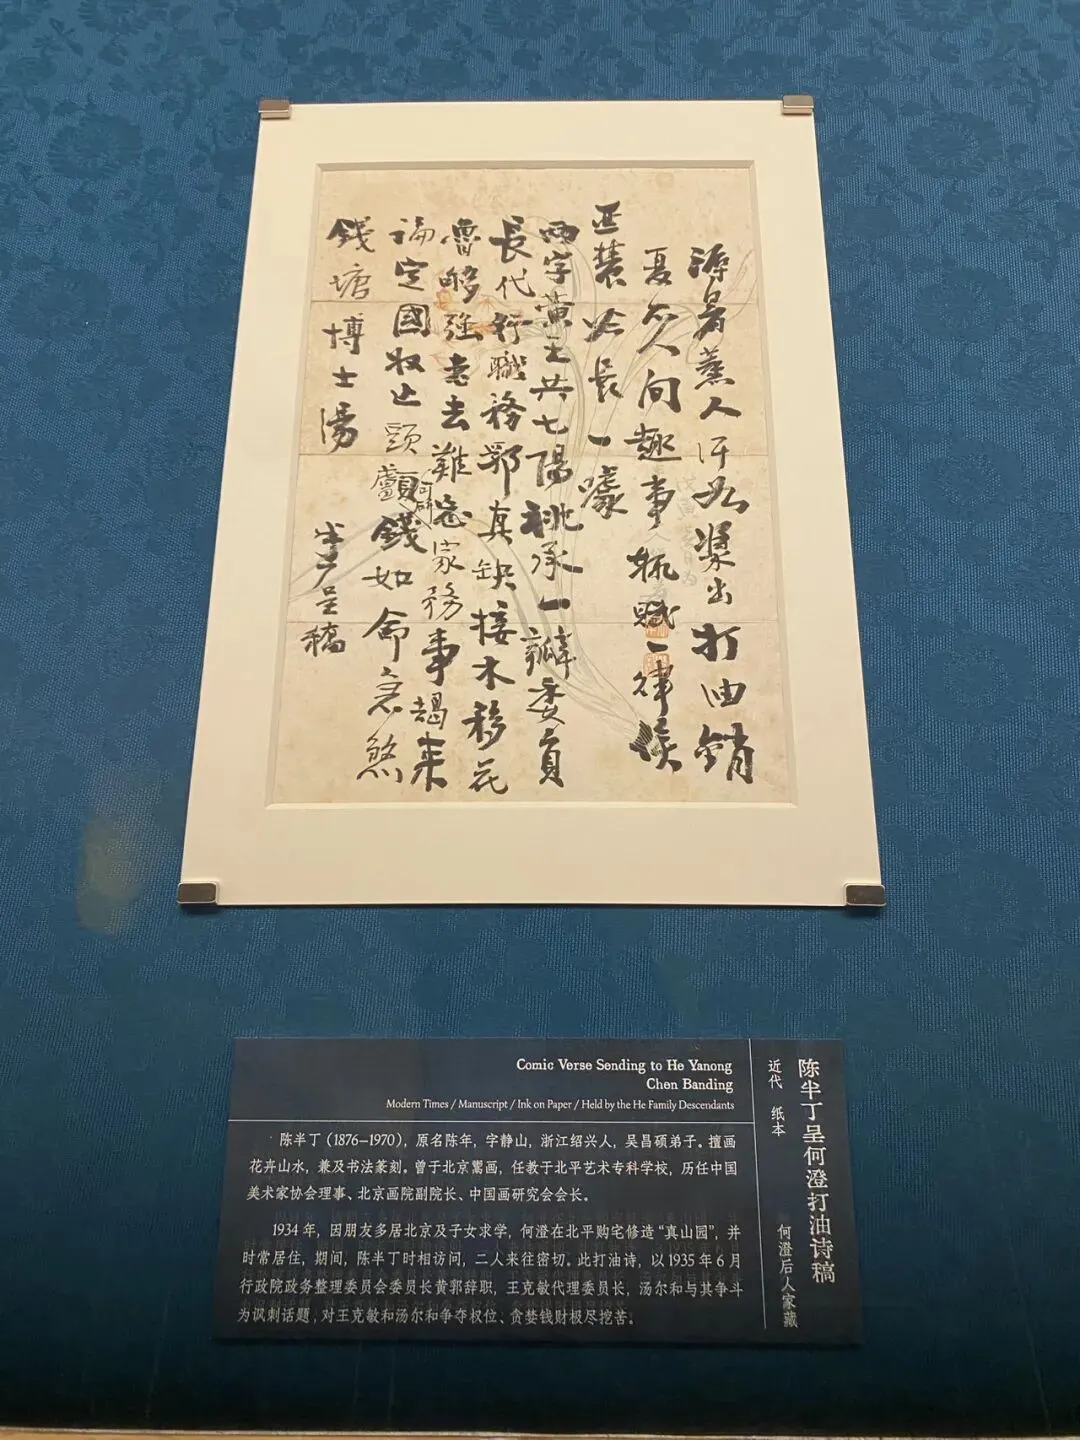 溽暑蒸人汗如漿出打油銷
夏亦人間趣事執職一律
亞農道長一噱
兩字黃王共七陽祧承一瓣委員
長代行職務郭真缺接木移花
魯够强老去難忘家務事朅来
論定國收止頭顱可研錢如命忘煞
錢塘博士湯
半丁呈稿
Comic Verse Sending to He Yanong
Chen Banding
Modern Times / Manuscript / Ink on Paper / Held by the He Family Descendants
陈半丁（1876—1970），原名陈年，字静山，浙江绍兴人，吴昌硕弟子。擅画
花卉山水，兼及书法篆刻。曾于北京鬻画，任教于北平艺术专科学校，历任中国
美术家协会理事、北京画院副院长、中国画研究会会长。
1934 年，因朋友多居北京及子女求学，何澄在北平购宅修造“真山园”，并
时常居住，期间，陈半丁时相访问，二人来往密切。此打油诗，以 1935 年 6 月
行政院政务整理委员会委员长黄郛辞职，王克敏代理委员长，汤尔和与其争斗
为讽刺话题，对王克敏和汤尔和争夺权位、贪婪钱财极尽挖苦。
陈半丁呈何澄打油诗稿
近代 纸本
何澄后人家藏